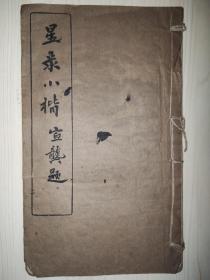 星录小楷
宣龚题